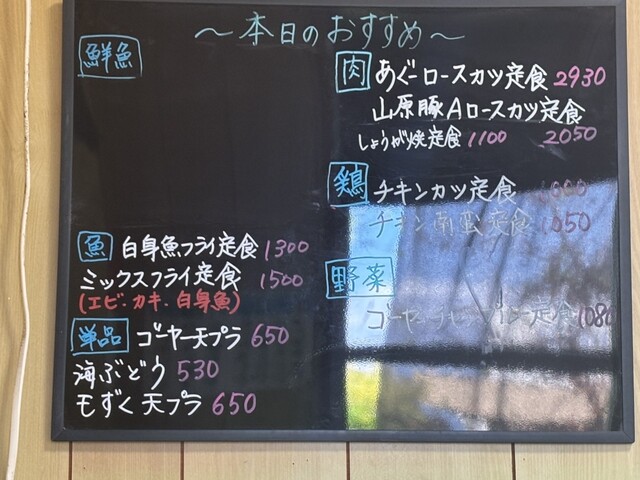 ～本日のおすすめ～
鮮魚
魚 白身魚フライ定食 1300
ミックスフライ定食 1500
(エビ.カキ.白身魚)
単品 ゴーヤー天プラ 650
海ぶどう 530
もずく天プラ 650
肉 あぐーロースカツ定食 2930
山原豚Aロースカツ定食
2050
しょうが焼定食 1100
鶏 チキンカツ定食
チキン南蛮定食 1050
野菜
ゴーヤーチャンプルー定食 1080